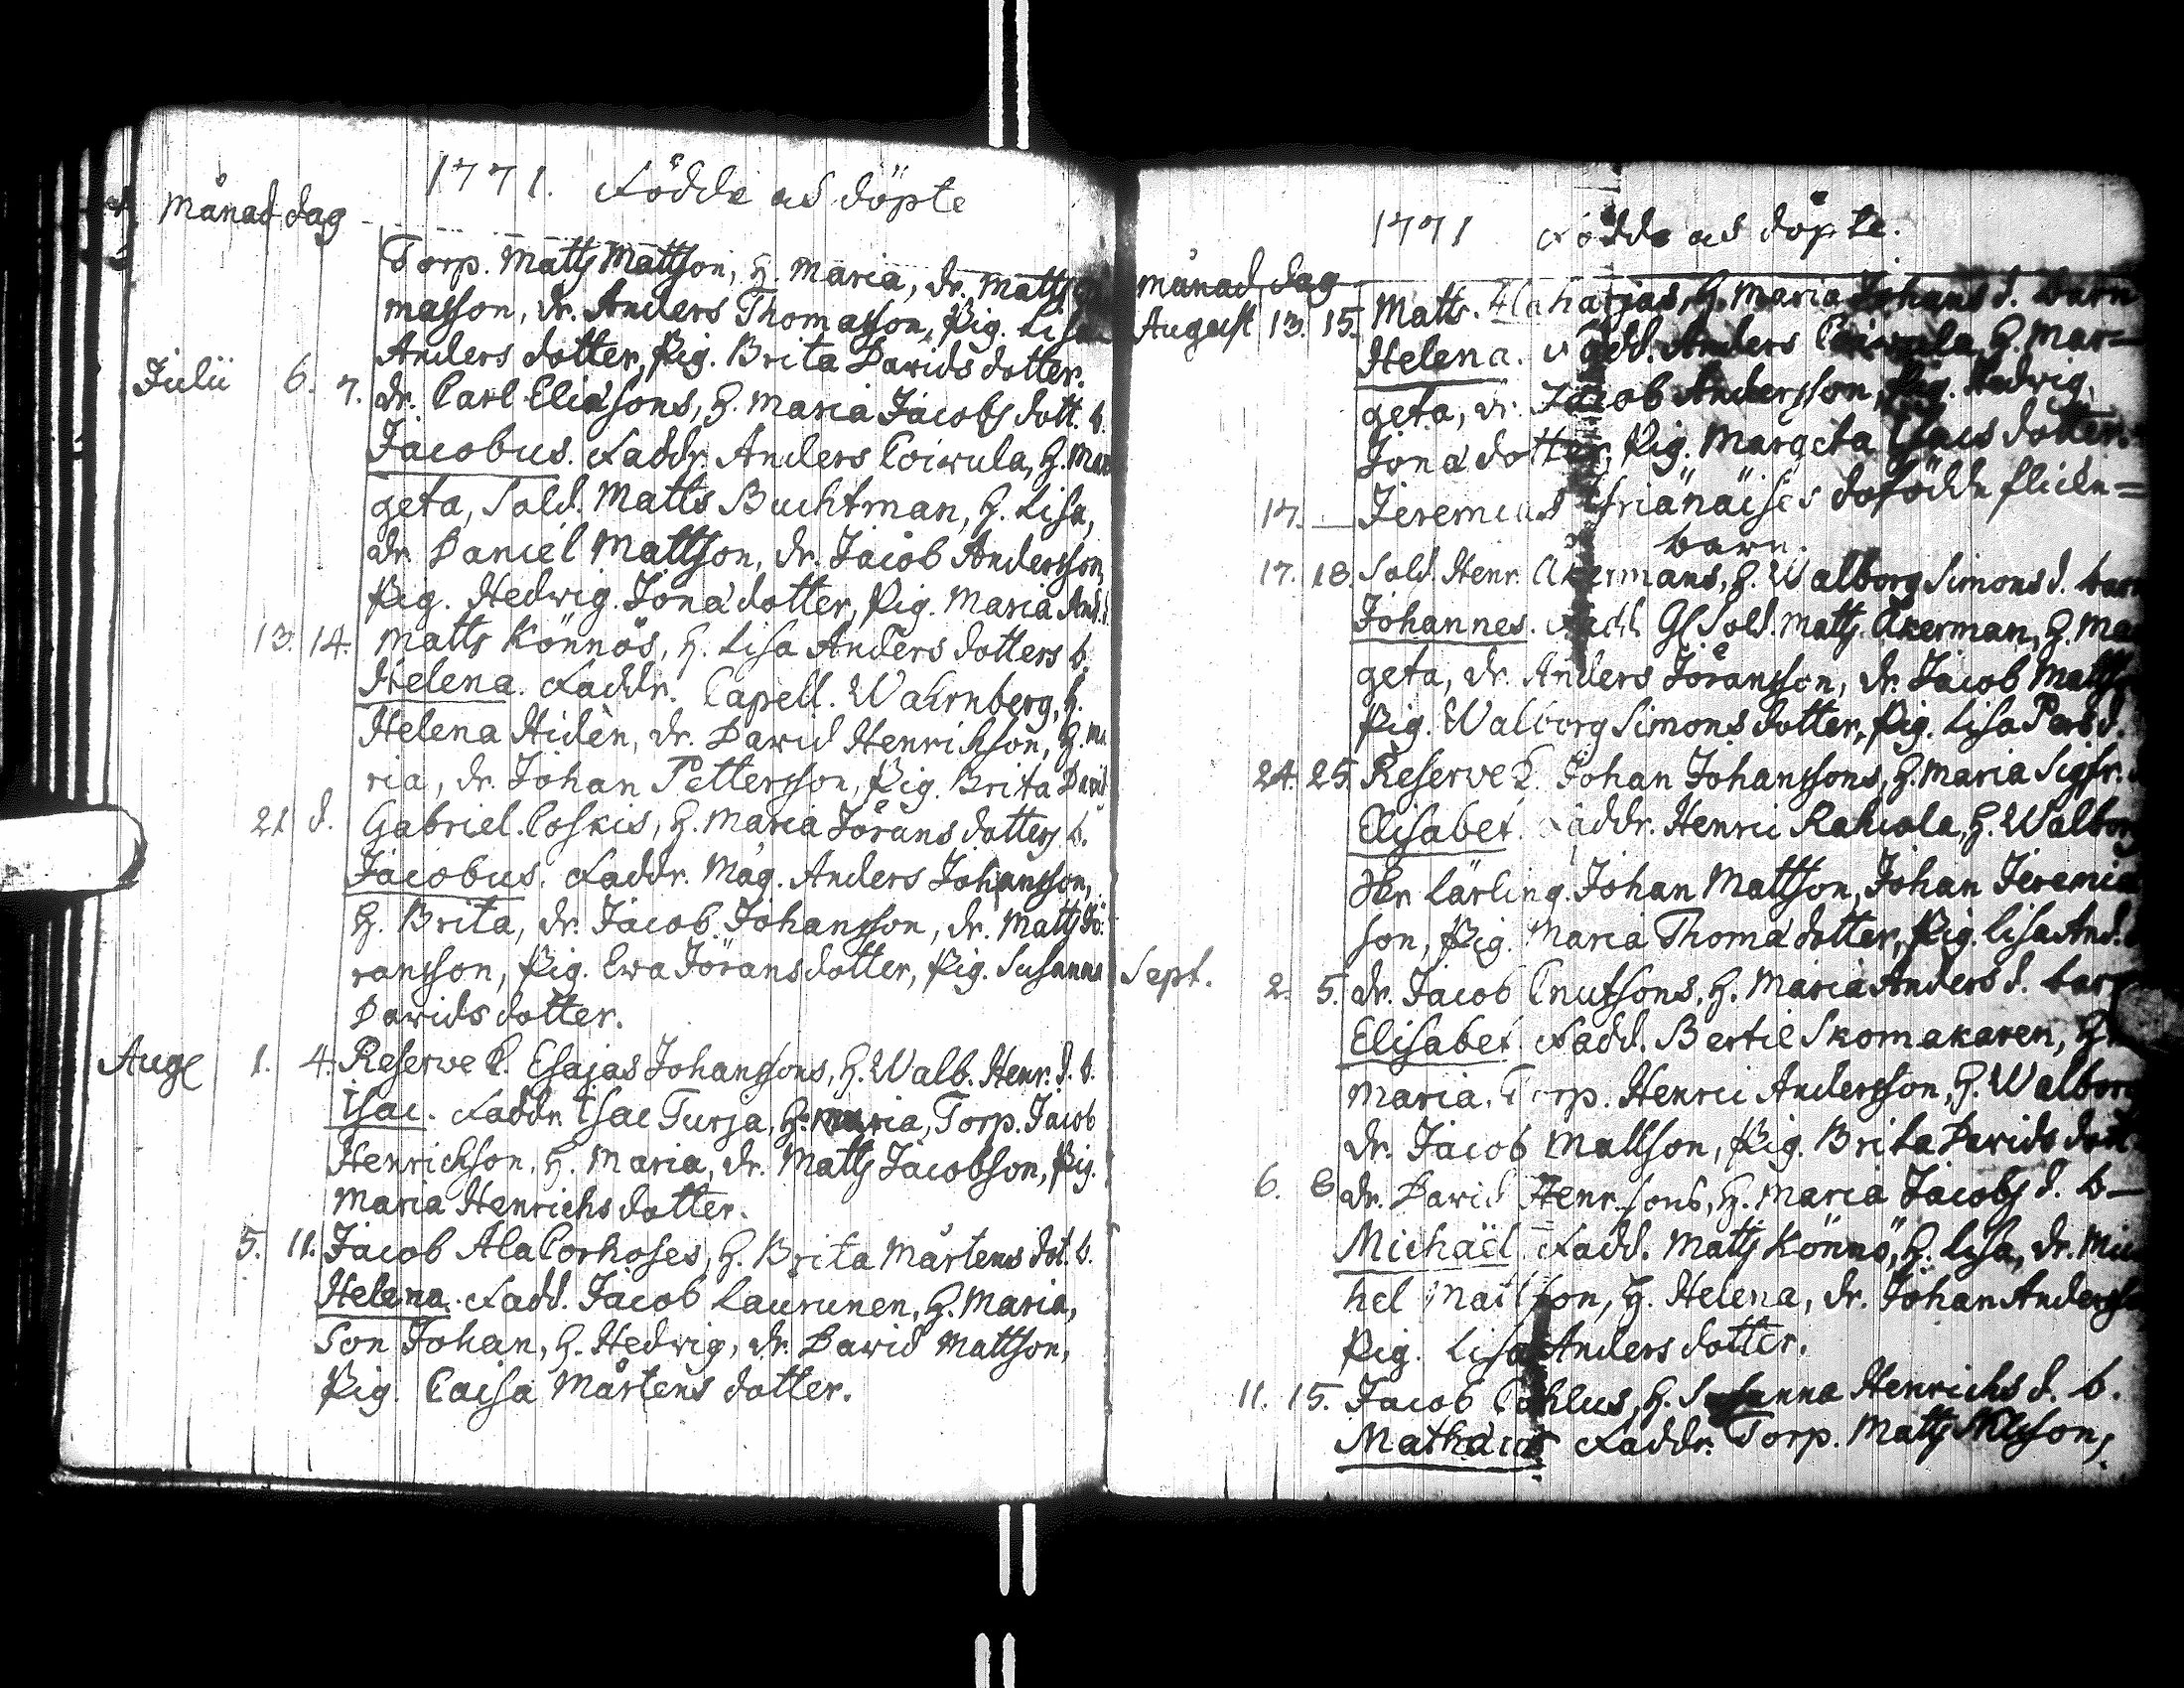 1771. Födde och döpte
Månad dag
Torp. Matts Mattson, H. Maria, dr. Matts
masson, dr. Anders Thomasson, Pig. Lisa
Anders dotter, Pig. Brita Davids dotter.
Julii 6. 7. dr. Carl Eliæsons, H. Maria Jacobs dott. b.
Jacobus. Faddr. Anders Coiwula, H. Mar
geta, Sold. Matts Buchtman, H. Lisa,
dr. Daniel Mattson, dr. Jacob Andersson,
Pig. Hedwig Jonæ dotter, Pig. Maria And. d.
13. 14. Matts Könnös, H. Lisa Anders dotters b.
Helena. Faddr. Capell. Wahrnberg, H.
Helena Hidèn, dr. David Henrichson, H. Ma
ria, dr. Johan Pettersson, Pig. Brita David
21 d. Gabriel Coskis, H. Maria Jörans dotters b.
Jacobus. Faddr. Mag. Anders Johansson,
H. Brita, dr. Jacob Johansson, dr. Matts Jö
ransson, Pig. Ewa Jöransdotter, Pig. Susanna
Davids dotter.
Aug 1. 4. Reserve C. Esajas Johanssons, H. Walb. Henr. d. b.
Isac. Faddr. Isac Turja, H. Maria, Torp. Jacob
Henrichson, H. Maria, dr. Matts Jacobson, Pig.
Maria Henrichs dotter.
5. 11. Jacob Ala Corhoses, H. Brita Mårtens dot. b.
Helena. Fadd. Jacob Laurunen, H. Maria,
Son Johan, H. Hedwig, dr. David Mattson,
Pig. Caisa Mårtens dotter.
1771 Födde och döpte.
Månad dag
August 13. 15. Matts H. Maria Johans d. barn
Helena. Fadd. Anders Coiwula, H. Mar=
geta, dr. Jacob Andersson, Pig. Hedwig
Jonæ dotter, Pig. Margeta Isacs dotter.
17. — Jeremias dofödde flicke=
barn.
17. 18. Sold. Henr. Åkermans, H. Walborg Simons d. barn
Johannes. Fadd. Gl Sold. Matts Åkerman, H. Mar
geta, dr. Anders Jöransson, dr. Jacob Mattson
Pig. Walborg Simons dotter, Pig. Lisa Pers d.
24. 25. Reserve C. Johan Johanssons, H. Maria Sigfr. d.
Elisabet. Faddr. Henric Rahcola, H. Walborg
lärling Johan Mattson, Johan Jeremiæ
son, Pig. Maria Thomæ dotter, Pig. Lisa And. d.
Sept. 2. 5. dr. Jacob Cnutsons, H. Maria Anders d. barn
Elisabet. Fadd. Bertil Skomakaren, H.
Maria, Torp. Henric Andersson, H. Walborg
dr. Jacob Mattson, Pig. Brita Davids dott.
6. 8 dr. David Henr. sons, H. Maria Jacobs d. b—
Michaël. Fadd. Matts Könnö, H. Lisa, dr. Mic
hel Mattson, H. Helena, dr. Johan Andersson
Pig. Lisa Anders dotter.
11. 15. Jacob H. Susanna Henrichs d. b.
Mathæus Faddr. Torp. Matts Nilsson,